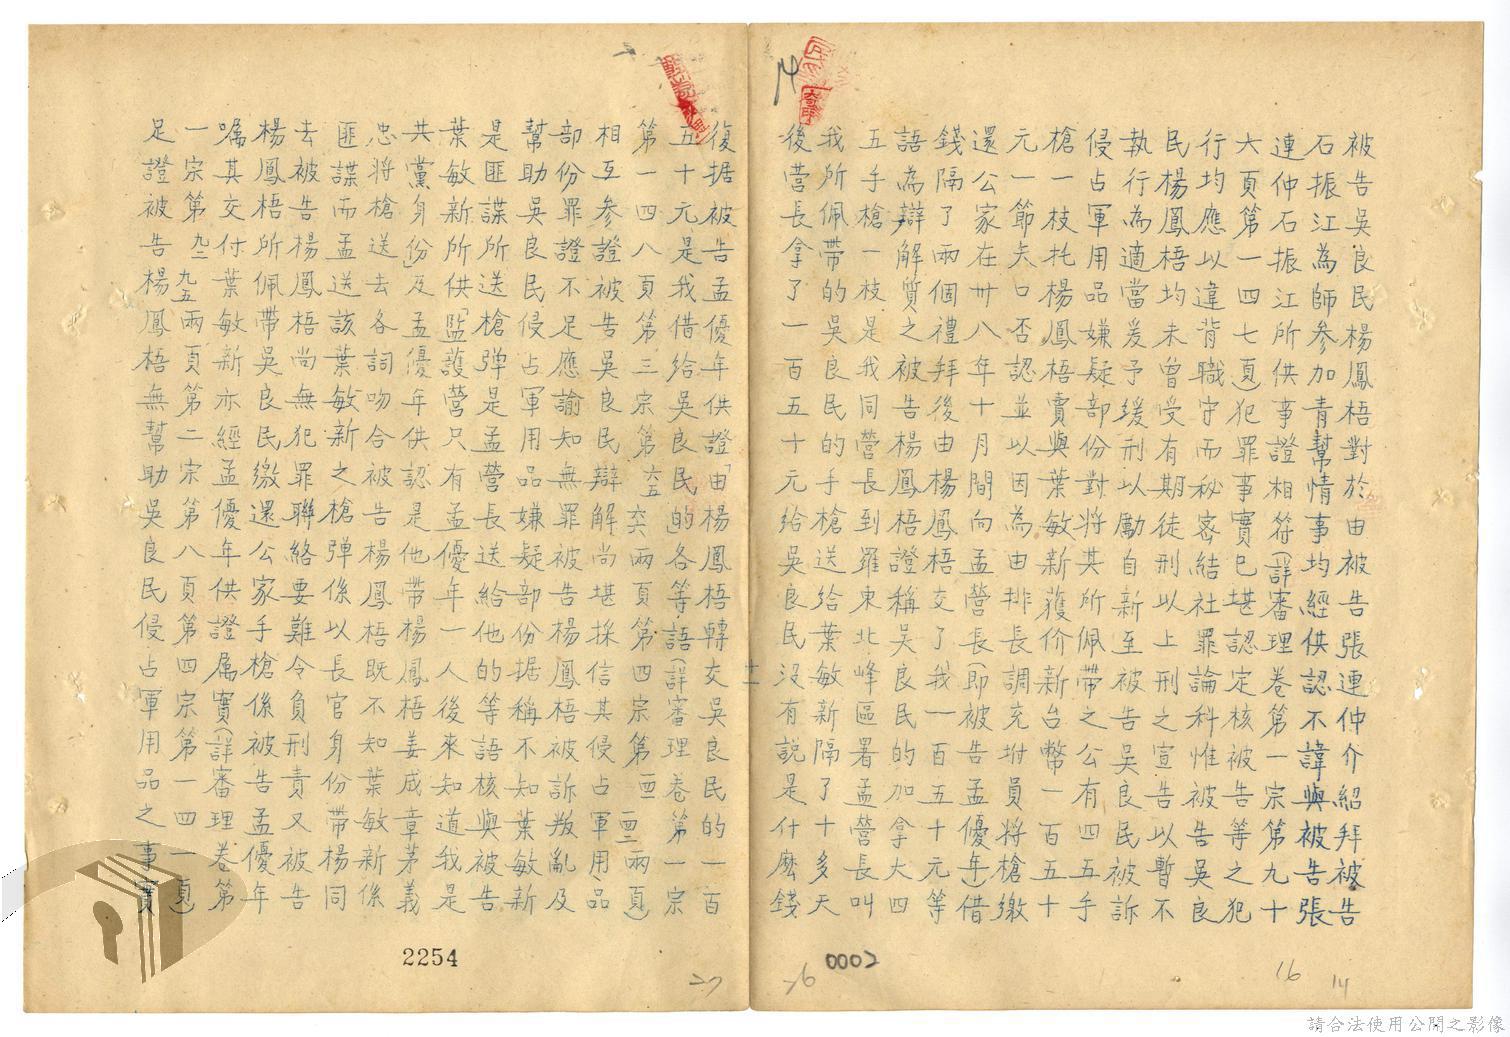 被告吳良民楊鳳梧對於由被告張連仲介紹拜被告
石振江為師參加青幫情事均經供認不諱與被告張
連仲石振江所供事證相符(詳審理卷第一宗第九十
六頁第一四七頁)犯罪事實已堪認定核被告等之犯
行均應以違背職守而秘密結社罪論科惟被告吳良
民楊鳳梧均未曾受有期徒刑以上刑之宣告以暫不
執行為適當爰予緩刑以勵自新至被告吳良民被訴
侵占軍用品嫌疑部份對將其所佩帶之公有四五手
槍一枝托楊鳳梧賣與葉敏新獲价新台幣一百五十
元一節矢口否認並以因為由排長調充坿員將槍繳
還公家在卅八年十月間向孟營長(即被告孟優年)借
錢隔了兩個禮拜後由楊鳳梧交了我一百五十元等
語為辯解質之被告楊鳳梧證稱吳良民的加拿大四
五手槍一枝是我同營長到羅東北峰區署孟營長叫
我所佩帶的吳良民的手槍送給葉敏新隔了十多天
後營長拿了一百五十元給吳良民沒有説是什麽錢
復据被告孟優年供證「由楊鳳梧轉交吳良民的一百
五十元是我借給吳良民的各等語(詳審理卷第一宗
第一四八頁第三宗第六五六六兩頁第四宗第一四一一四二兩頁)
相互參證被告吳良民辯解尚堪採信其侵占軍用品
部份罪證不足應諭知無罪被告楊鳳梧被訴叛亂及
幫助吳良民侵占軍用品嫌疑部份据稱不知葉敏新
是匪諜所送槍弹是孟營長送給他的等語核與被告
葉敏新所供「監護營只有孟優年一人後來知道我是
共黨身份」及孟優年供認是他帶楊鳳梧姜成章茅義
忠將槍送去各詞吻合被告楊鳳梧既不知葉敏新係
匪諜而孟送該葉敏新之槍弹係以長官身份帶楊同
去被告楊鳳梧尚無犯罪聯絡要難令負刑責又被告
楊鳳梧所佩帶吳良民繳還公家手槍係被告孟優年
囑其交付葉敏新亦經孟優年供證属實(詳審理卷第
一宗第九二九五兩頁第二宗第八頁第四宗第一四一頁)
足證被告楊鳳梧無幫助吳良民侵占軍用品之事實
2254
0002
27
76
16
14
14
請合法使用公開之影像